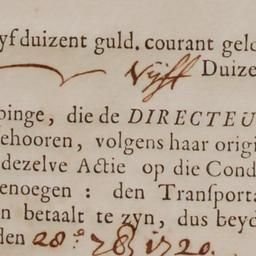 yf duizent guld. courant geld
Vijff Duize
pinge, die de DIRECTEU
ehooren, volgens haar origi
dezelve Actie op die Cond
enoegen : den Transporta
n betaalt te zyn, dus beyd
den 28.e 7b 1720.